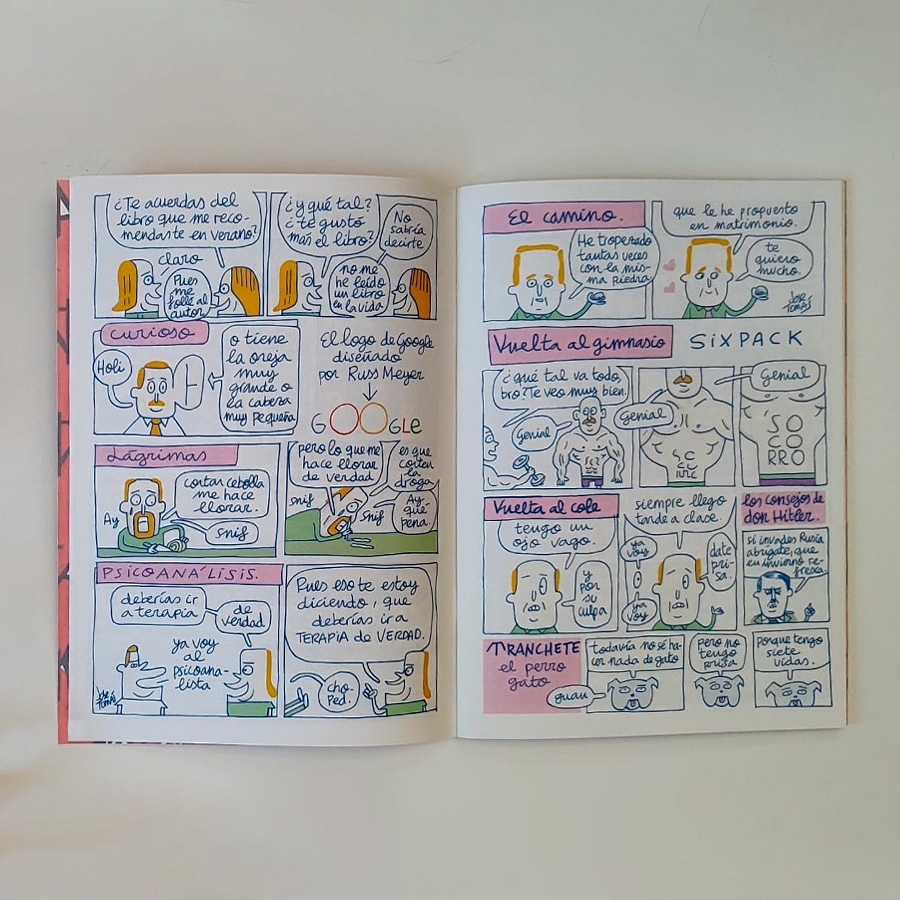 ¿Te acuerdas del
libro que me reco-
mendaste en verano?
claro
Pues
me
follé al
autor
¿y qué tal?
¿te gustó
más el libro?
No
sabría
decirte
no me
he leído
un libro
en la vida
curioso
Holi
o tiene
la oreja
muy
grande o
la cabeza
muy pequeña
El logo de Google
diseñado
por Russ Meyer
GOOGLe
Lágrimas
Ay
cortar cebolla
me hace
llorar.
snif
pero lo que me
hace llorar
de verdad
es que
corten
la
droga.
snif
snif
Ay,
qué
pena.
PSICOANÁLISIS.
deberías ir
a terapia
de
verdad
ya voy
al
psicoana-
lista
José
Tomás
Pues eso te estoy
diciendo, que
deberías ir a
TERAPIA de VERDAD.
cho-
ped.
El camino.
He tropezado
tantas veces
con la mis-
ma piedra
que le he propuesto
en matrimonio.
te
quiero
mucho.
José
Tomás
Vuelta al gimnasio
SiXPACK
¿qué tal va todo,
bro? Te veo muy bien.
Genial
Genial
Genial
SO
CO
RRO
Vuelta al cole
tengo un
ojo vago.
y
por
su
culpa
siempre llego
tarde a clase.
ya
voy
date
pri-
sa.
ya
voy
los consejos de
don Hitler.
si invades Rusia
abrígate, que
en invierno re-
fresca.
TRANCHETE
el perro
gato
todavía no sé ha-
cer nada de gato
guau
pero no
tengo
prisa
porque tengo
siete
vidas.